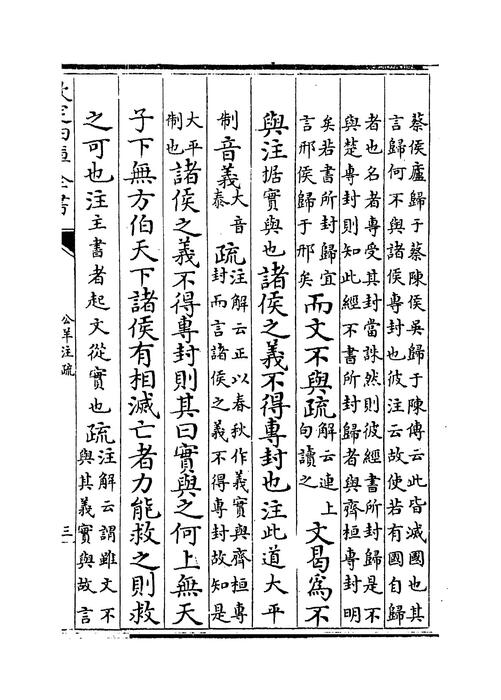 蔡侯廬歸于蔡陳侯吳歸于陳傳云此皆滅國也其
言歸何不與諸侯專封也彼注云故使若有國自歸
者也名者專受其封當誅然則彼經書所封歸是不
與楚專封則知此經不書所封歸者與齊桓專封明
矣若書所封歸宜
言邢侯歸于邢矣
而文不與疏
解云連上
句讀之
文曷為不
與注据實與也諸侯之義不得專封也注此道大平
制音義
大音
泰
疏
注解云正以春秋作義實與齊桓專
封而言諸侯之義不得專封故知是
大平
制也
諸侯之義不得專封則其曰實與之何上無天
子下無方伯天下諸侯有相滅亡者力能救之則救
之可也注主書者起文從實也疏
注解云謂雖文不
與其義實與故言
欽定四庫全書
公羊注疏
三